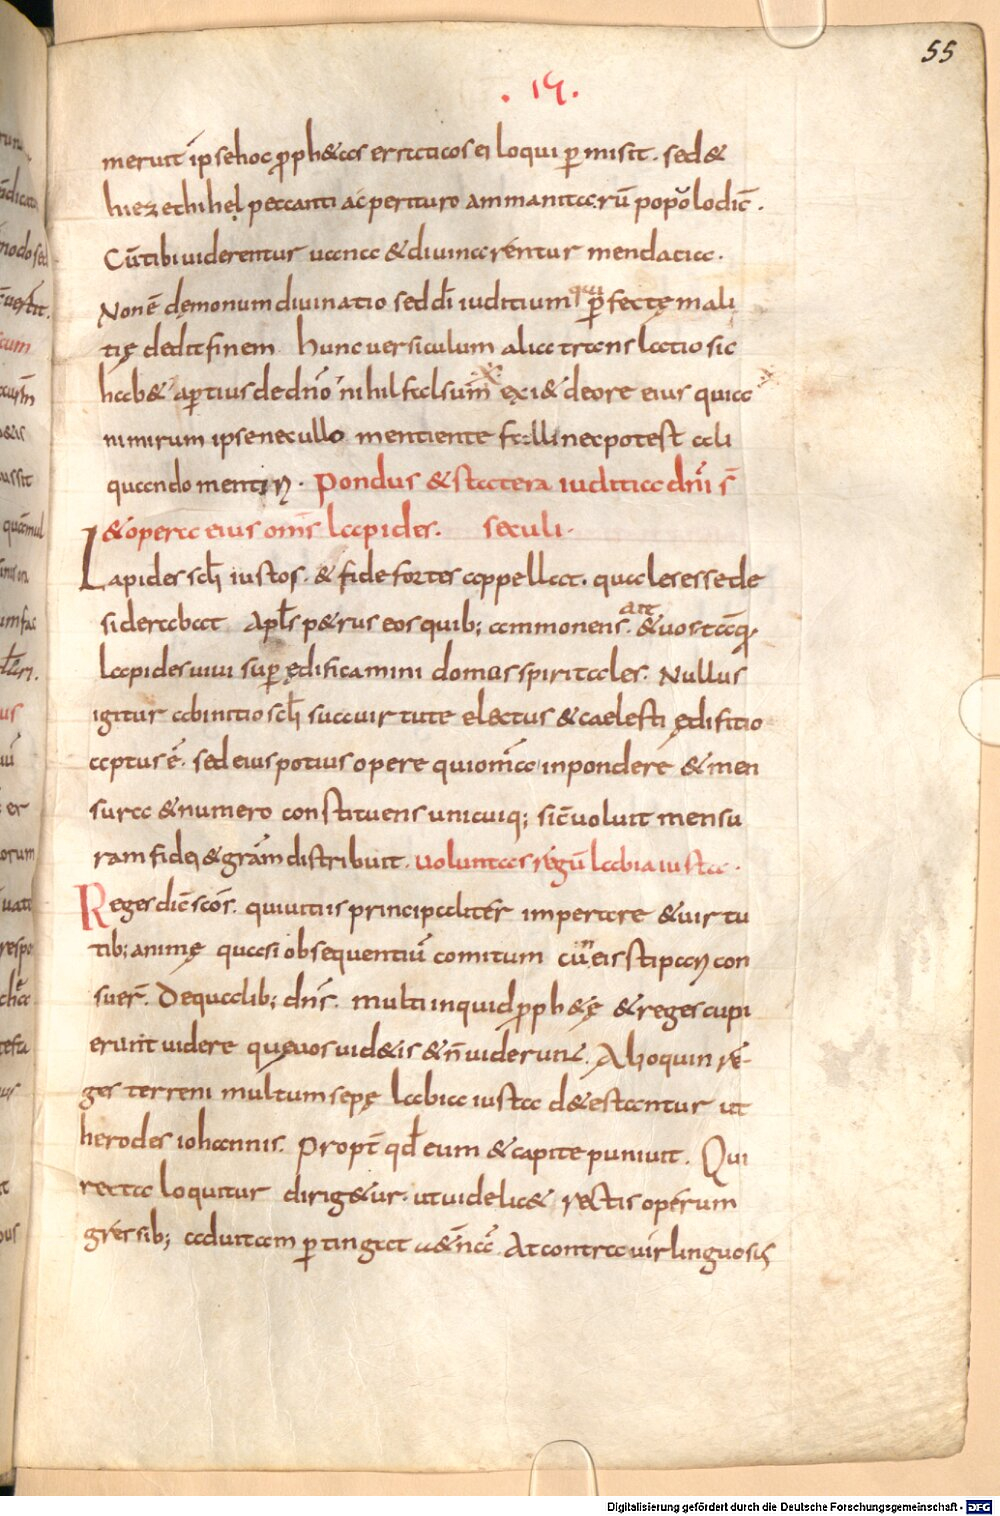 55
. 15 .
meruit ipsehoc ꝓph&as erraticos ei loqui ꝑmisit. sed &
hiezechihel peccanti ac perituro ammanitarū popolo dic̄.
Cū tibi uiderentur uana & diuinarentur mendatia.
Non ē dęmonum diuinatio sed dī iuditium qui ꝑfectę mali
tię dedit finem hunc uersiculum alia translatio sic
hab& aꝑtius de dn̄o nihil falsum exi& de ore eius quia
nimirum ipse nec ullo mentiente falli nec potest ali
quando mentiri. Pondus & statera iuditia dn̄i s̄
& opera eius om̄s lapides. seculi.
Lapides scl̄i iustos. & fide fortes appellat. quales esse de
siderabat Apl̄s p&rus eos quib; ammonens. ait &uos taq̄,
lapides uiui suꝑ ędificamini domus spiritales. Nullus
igitur abinitio scl̄i sua uirtute electus & caelesti ędifitio
aptus ē. sed eius potius opere qui om̄a inpondere & men
sura & numero constituens unicuiq; sic̄ uoluit mensu
ram fidei & grām distribuit. uoluntas regū labia iusta.
Reges dic̄ scōs. qui uitiis principaliter imperare & uirtu
tib; animę quasi obsequentiū comitum cū eis stipari con
suer̄. De qualib; dn̄s. multi inquid ꝓph&ę & reges cupi
erunt uidere quę uos uid&is & n̄ uiderunt. Alioquin re
ges terreni multum sepę labia iusta d&estantur ut
herodes iohannis. Propt̄ qd̄ eum & capite puniuit. Qui
recta loquitur dirig&ur. ut uidelic& rectis operum
gressib; ad uitam ꝑtingat a&n̄ā. At contra uir linguosus
Digitalisierung gefördert durch die Deutsche Forschungsgemeinschaft - DFG